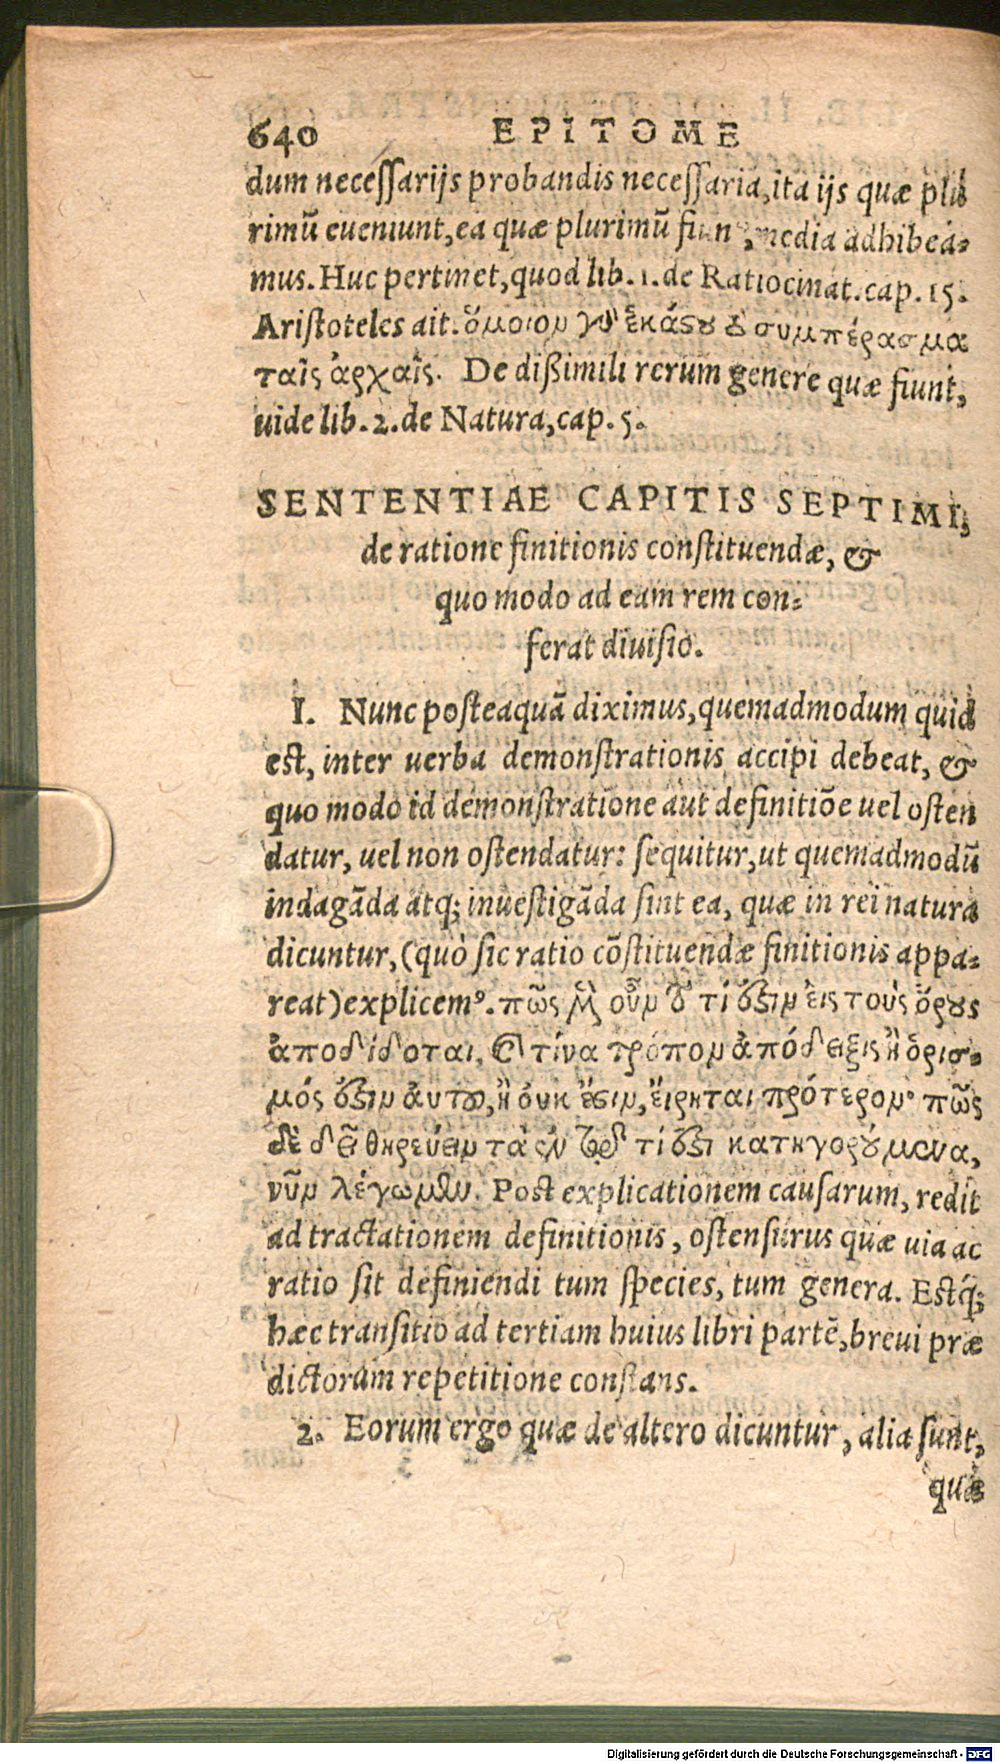 640 EPITOME
dum neceſſarijs probandis neceſſaria, ita ijs quæ plu
rimũ eueniunt, ea quæ plurimũ fiunt, media adhibea-
mus. Huc pertinet, quod lib. 1. de Ratiocinat. cap. 15.
Ariſtoteles ait. ὅμοιον γὰρ ἑκάστου τὸ συμπέρασμα
ταῖς ἀρχαῖς. De dißimili rerum genere quæ fiunt,
uide lib. 2. de Natura, cap. 5.
SENTENTIAE CAPITIS SEPTIMI,
de ratione finitionis conſtituendæ, &
quo modo ad eam rem con-
ferat diuiſio.
I. Nunc poſteaquã diximus, quemadmodum quid
eſt, inter uerba demonſtrationis accipi debeat, &
quo modo id demonſtratione aut definitiõe uel oſten
datur, uel non oſtendatur: ſequitur, ut quemadmodũ
indagãda atq; inueſtigãda ſint ea, quæ in rei natura
dicuntur, (quò ſic ratio cõſtituendæ finitionis appa-
reat) explicemꝰ. πῶς μὲν οὖν τὸ τί ἐστιν εἰς τοὺς ὅρους
ἀποδίδοται, καὶ τίνα τρόπον ἀπόδειξις ἢ ὁρισ-
μός ἐστιν αὐτοῦ, ἢ οὐκ ἔστιν, εἴρηται πρότερον· πῶς
δὲ δεῖ θηρεύειν τὰ ἐν τῷ τί ἐστι κατηγορούμενα,
νῦν λέγωμεν. Poſt explicationem cauſarum, redit
ad tractationem definitionis, oſtenſurus quæ uia ac
ratio ſit definiendi tum ſpecies, tum genera. Eſtq́;
hæc tranſitio ad tertiam huius libri partẽ, breui præ
dictorum repetitione conſtans.
2. Eorum ergo quæ de altero dicuntur, alia ſunt,
quæ
Digitalisierung gefördert durch die Deutsche Forschungsgemeinschaft - DFG